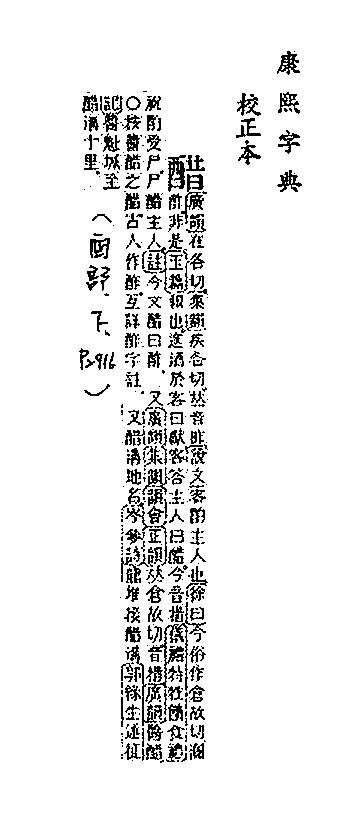 康熙字典
校正本
醋
廣韻在各切集韻疾各切𠀤音昨說文客酌主人也徐曰今俗作倉故切溷
酢非是玉篇報也進酒於客曰獻客答主人曰醋今音措儀禮特牲饋食禮
祝酌受尸尸醋主人註今文醋曰酢 又廣韻集韻韻會正韻𠀤倉故切音措廣韻醬醋
○按醬醋之醋古人作酢互詳酢字註 又醋溝地名岑參詩龍堆接醋溝郭緣生述征
記醬魁城至
醋溝十里
（酉部、下、P2916）